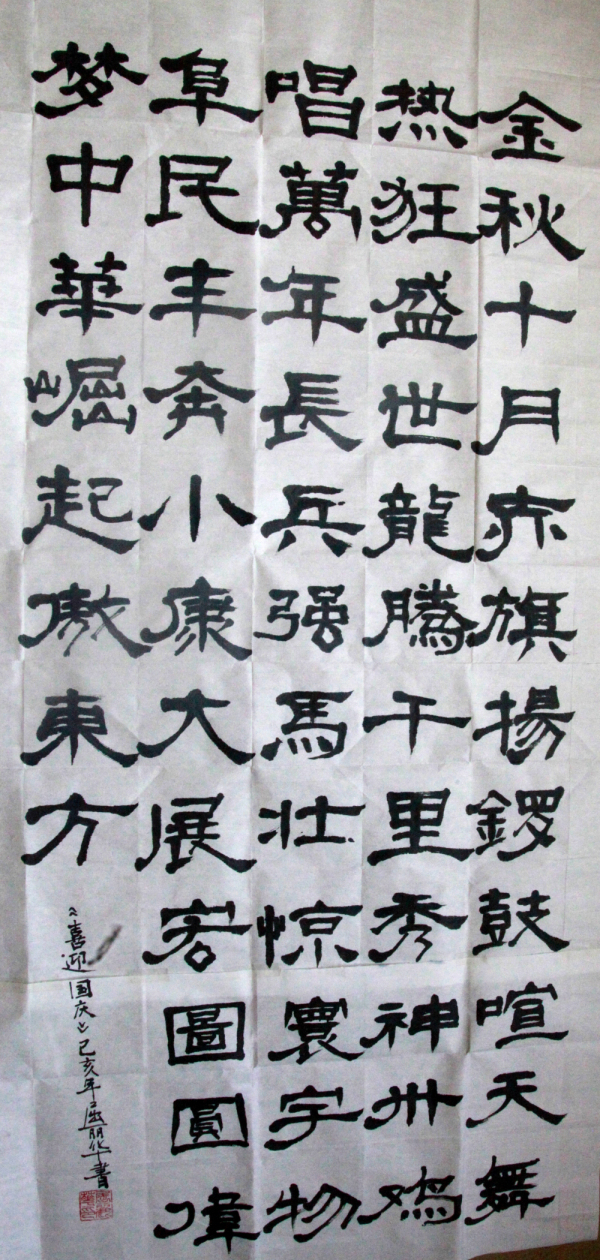 金秋十月赤旗揚锣鼓喧天舞
热狂盛世龍騰千里秀神州鸡
唱萬年長兵强馬壮惊寰宇物
阜民丰奔小康大展宏圖圓偉
梦中華崛起傲東方
《喜迎国庆》己亥年朋华書